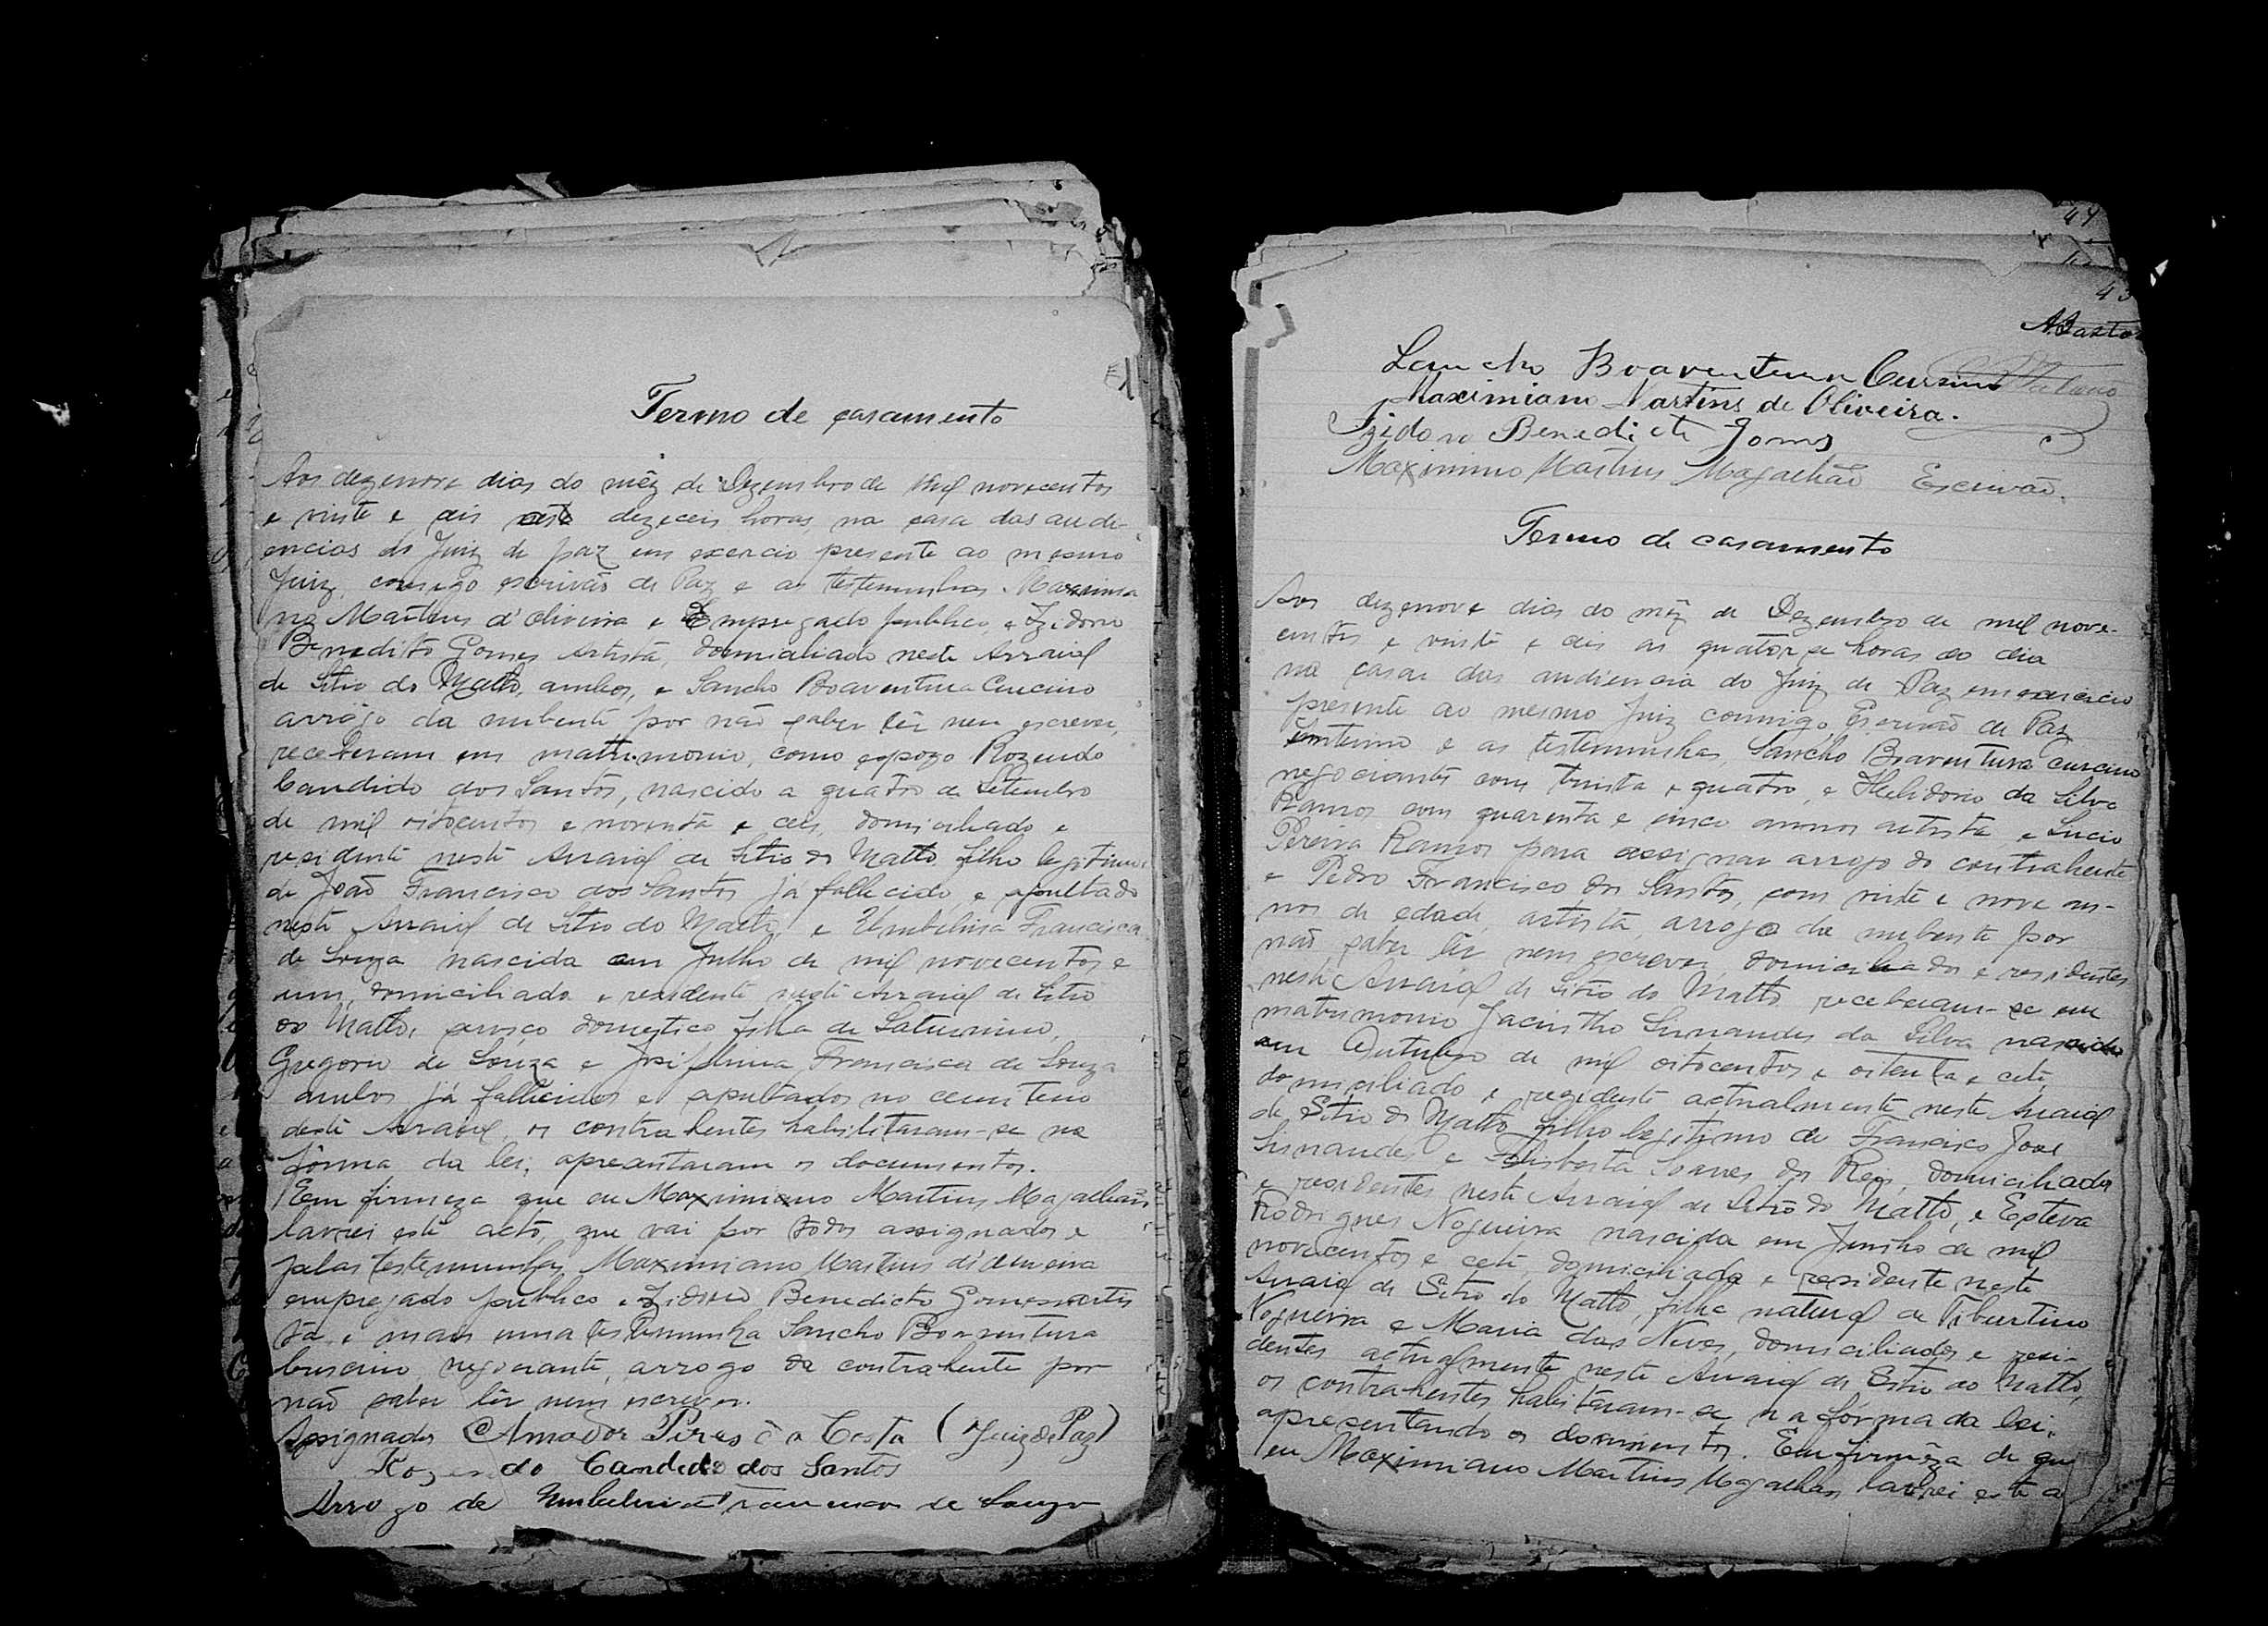 Termo de casamento
Aos dezenove dias do mêz de Dezembro de mil novecentos
e vinte e ceis dezeceis horas, na casa das audi-
encias do Juiz de paz em exercio, presente ao mesmo
Juiz, comigo escrivão de Paz e as testemunhas. Maximia
no Martins d'Oliveira e Empregado publico, e Izidorio
Benedito Gomes Artista, domiciliado neste Arraial
de Sitio do Matto, ambos, e Sancho Boaventura Curcino
arrôgo da nubente por não saber lêr nem escrever,
receberam em matrimonio, como espozo Rozendo
Candido dos Santos, nascido a quatro de Setembro
de mil oitocentos e noventa e ceis, domiciliado e
residente neste Arraial de Sitio do Matto filho legitimo
de João Francisco dos Santos já fallecido, e sepultado
neste Arraial de Sitio do Matto, e Umbelina Francisca
de Souza nascida em Julho de mil novecentos e
um, domiciliada e residente neste Arraial de Sitio
do Matto, serviço domestico filha de Saturnino
Gregorio de Souza e Francisca de Souza
ambos já fallicidos e sepultados no cemiterio
deste Arraial, os contrahentes habilitaram-se na
fórma da lei, apresentaram os documentos.
Em firmeza que eu Maximiano Martins Magalhães
lavrei este acto, que vai por todos assignados e
pelas testemunhas Maximiano Martins d'Oliveira
empregado publico e Izidorio Benedicto Gomes artis
ta e mais uma testemunha Sancho Boaventura
Curcino negociante, arrogo da contrahente por
não saber lêr nem escrever.
Assignados Amador Pires da Costa (Juiz de Paz)
Rozendo Candido dos Santos
Arrogo de Umbelina Francisca de Souza
49
43
Sancho Boaventura Curcino
Maximiano Martins de Oliveira.
Izidoro Benedicto Gomes
Maximiano Martins Magalhães Escrivão.
Termo de casamento
Aos dezenove dias do mêz de Dezembro de mil nove-
centos e vinte e ceis as quatorze horas do dia
na casa das audiencia do Juiz de Paz em exercicio
presente ao mesmo Juiz commigo, Escrivão de Paz
interino e as testemunhas, Sancho Boaventura Curcino
negociante com trinta e quatro, e Helidorio da Silva
Ramos com quarenta e cinco annos artista, e Lucio
Pereira Ramos para assignar arrogo do contrahente
e Pedro Francisco dos Santos, com vinte e nove an-
nos de edade, artista, arrogo da nubente por
não saber lêr nem escrever, domiciliados e residentes
neste Arraial de Sitio do Matto receberam-se em
matrimonio Jacintho Sernandes da Silva nascido
em Outubro de mil oitocentos e oitenta e cete,
domiciliado e rezidente actualmente neste Arraial
de Sitio do Matto filho legitimo de Francisco José
Sernandes e Felisberta Soares dos Reis, domiciliados
e residentes neste Arraial de Sitio do Matto, e Esteva
Rodrigues Nogueira nascida em Junho de mil
novecentos e cete, domiciliada e residente neste
Arraial de Sitio do Matto, filha natural de Tiburtino
Nogueira e Maria das Neves, domiciliados e resi-
dentes actualmente neste Arraial de Sitio do Matto,
os contrahentes habilitaram-se na fórma da lei,
apresentando os documentos. Em firmêza de que
eu Maximiano Martins Magalhães lavrei este a